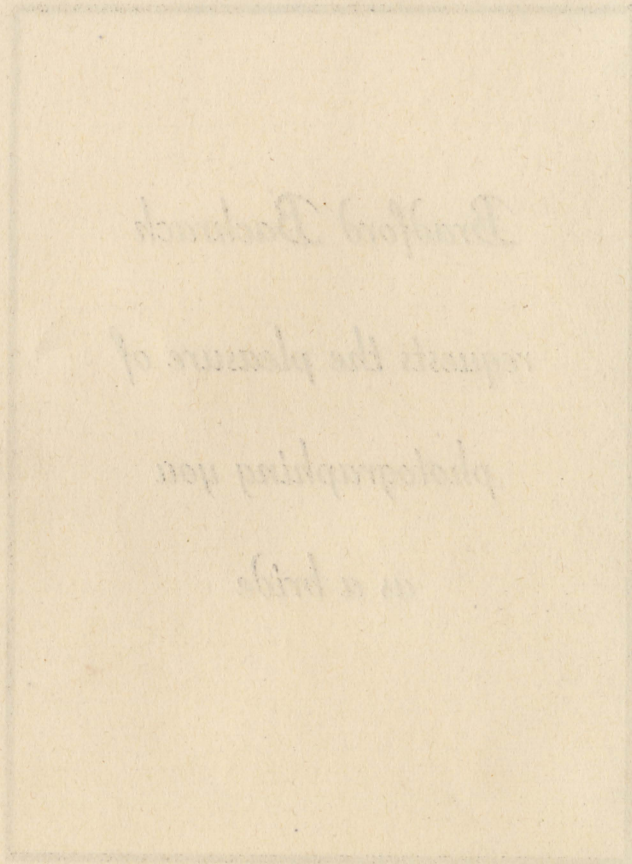 Bradford Bachrach
requests the pleasure of
photographing you
as a bride